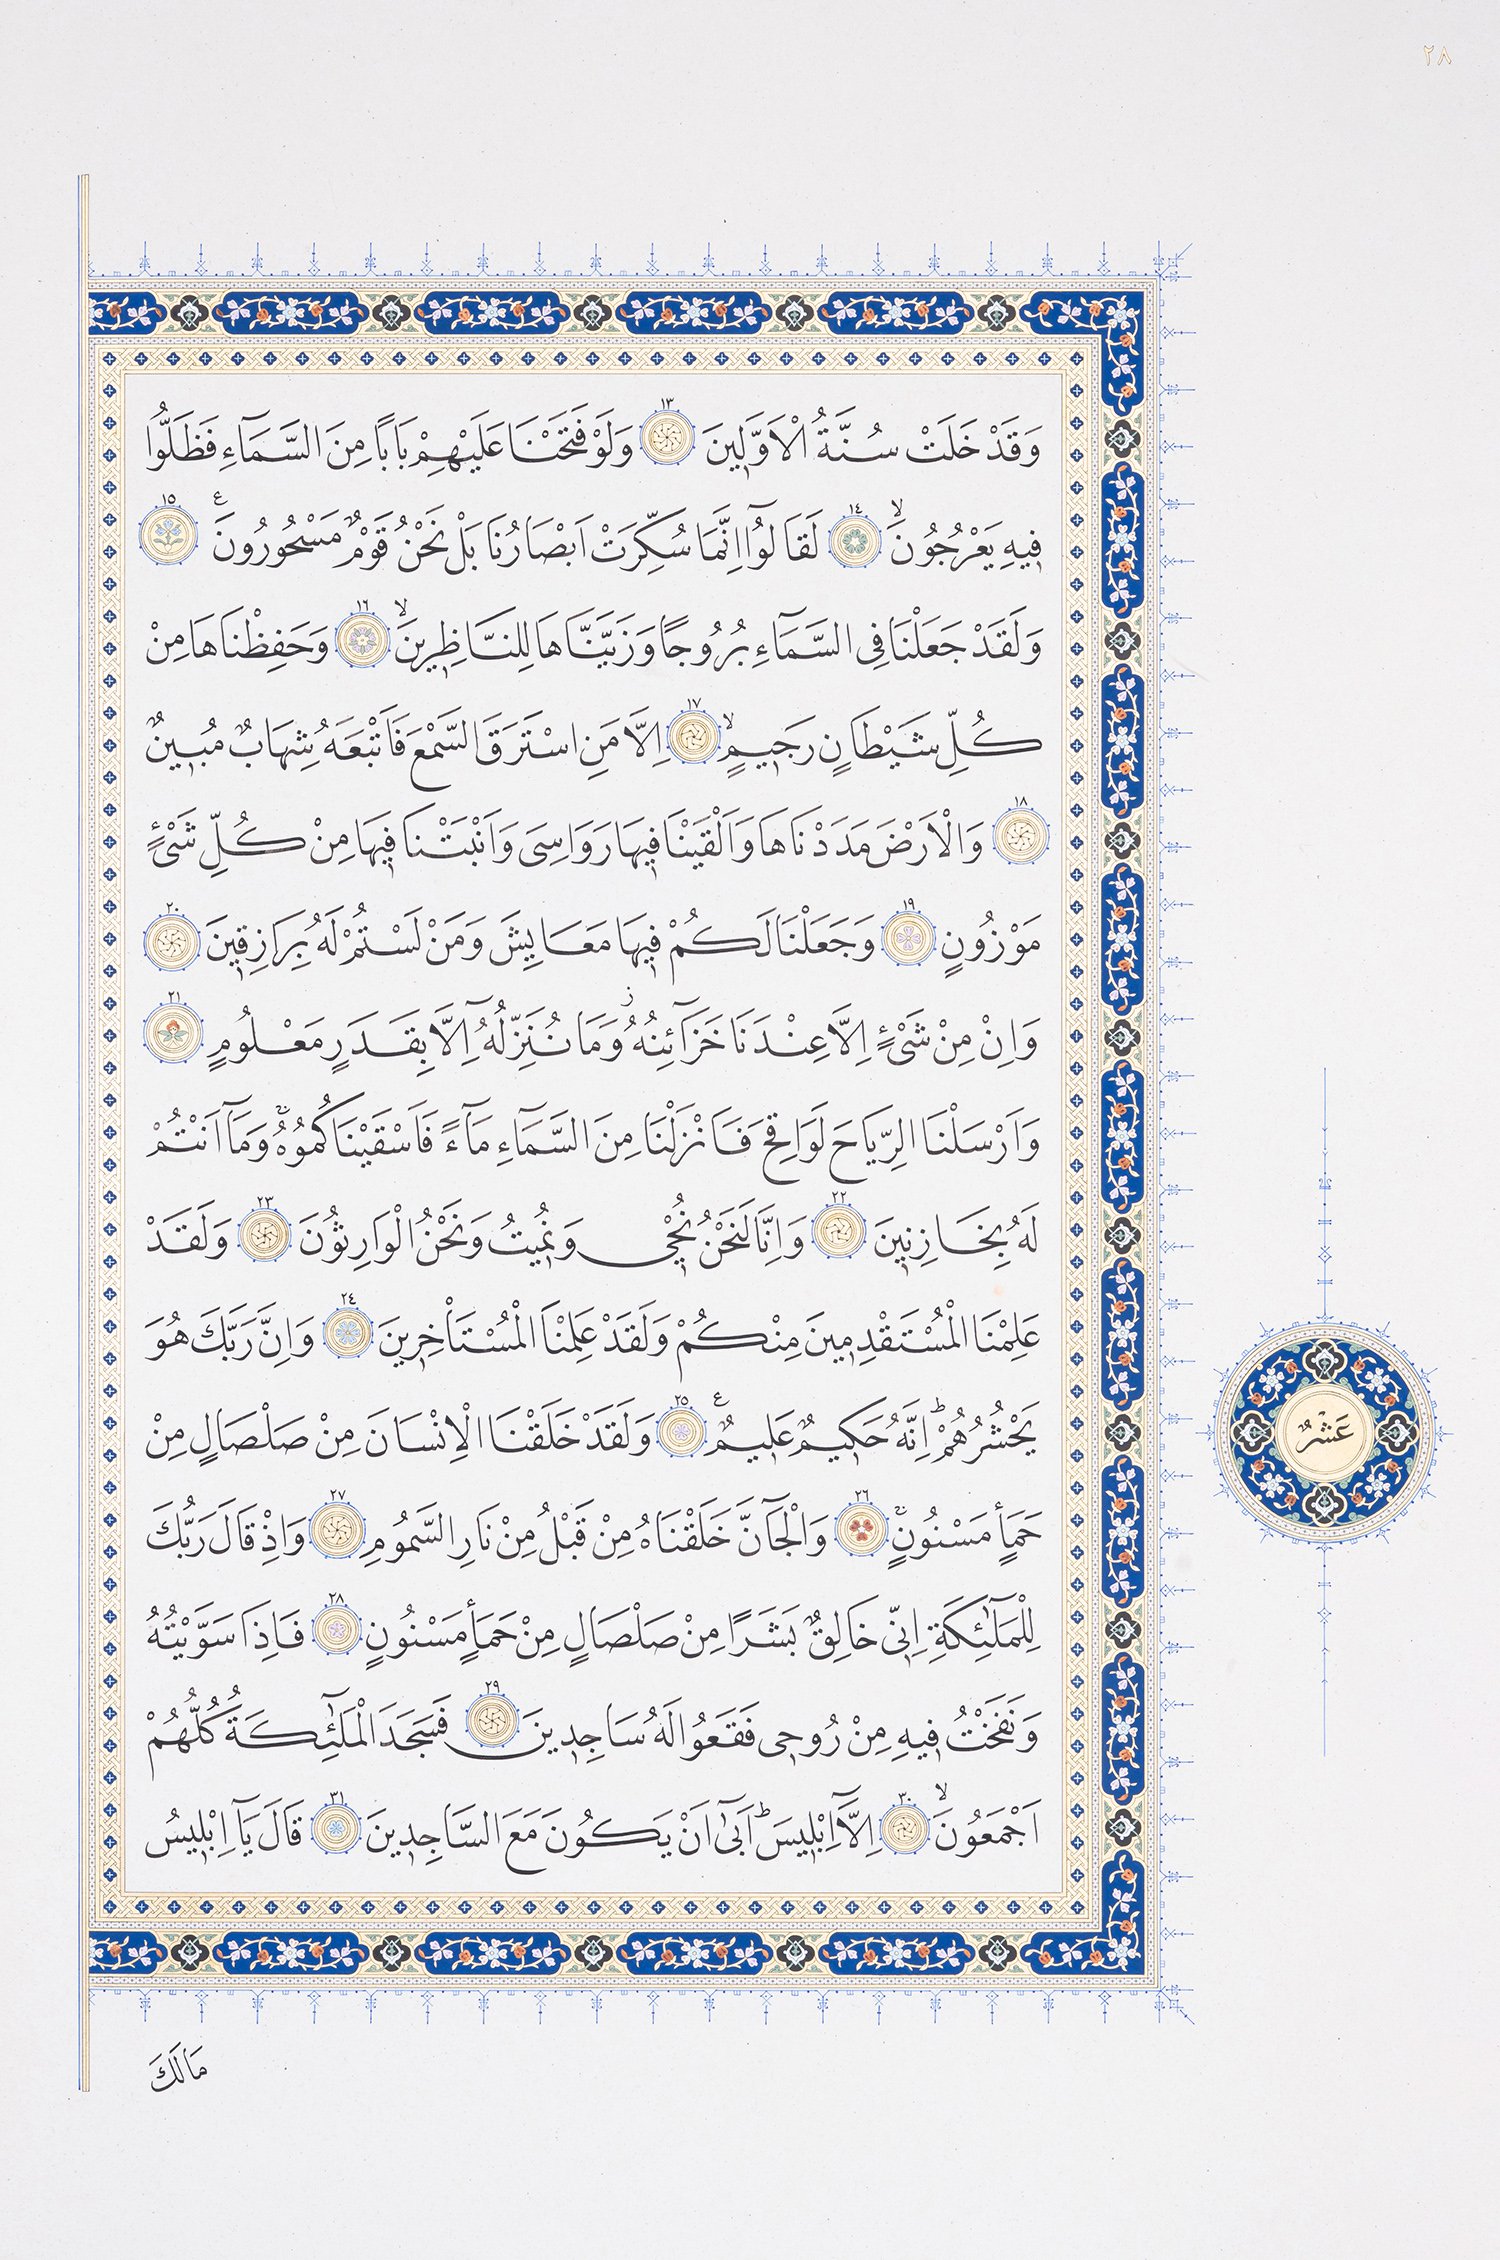 ٢٨
وَقَدْ خَلَتْ سُنَّةُ الْاَوَّلِينَ ١٣ وَلَوْ فَتَحْنَا عَلَيْهِمْ بَابًا مِنَ السَّمَآءِ فَظَلُّوا
فِيهِ يَعْرُجُونَۙ ١٤ لَقَالُوٓا اِنَّمَا سُكِّرَتْ اَبْصَارُنَا بَلْ نَحْنُ قَوْمٌ مَسْحُورُونَ ع ١٥
وَلَقَدْ جَعَلْنَا فِى السَّمَآءِ بُرُوجًا وَزَيَّنَّاهَا لِلنَّاظِرِينَۙ ١٦ وَحَفِظْنَاهَا مِنْ
كُلِّ شَيْطَانٍ رَجِيمٍۙ ١٧ اِلَّا مَنِ اسْتَرَقَ السَّمْعَ فَاَتْبَعَهُ شِهَابٌ مُبِينٌ
١٨ وَالْاَرْضَ مَدَدْنَاهَا وَاَلْقَيْنَا فِيهَا رَوَاسِىَ وَاَنْبَتْنَا فِيهَا مِنْ كُلِّ شَىْءٍ
مَوْزُونٍ ١٩ وَجَعَلْنَا لَكُمْ فِيهَا مَعَايِشَ وَمَنْ لَسْتُمْ لَهُ بِرَازِقِينَ ٢٠
وَاِنْ مِنْ شَىْءٍ اِلَّا عِنْدَنَا خَزَآئِنُهُ ز وَمَا نُنَزِّلُهُٓ اِلَّا بِقَدَرٍ مَعْلُومٍ ٢١
وَاَرْسَلْنَا الرِّيَاحَ لَوَاقِحَ فَاَنْزَلْنَا مِنَ السَّمَآءِ مَآءً فَاَسْقَيْنَاكُمُوهُۚ وَمَآ اَنْتُمْ
لَهُ بِخَازِنِينَ ٢٢ وَاِنَّا لَنَحْنُ نُحْيِى وَنُمِيتُ وَنَحْنُ الْوَارِثُونَ ٢٣ وَلَقَدْ
عَلِمْنَا الْمُسْتَقْدِمِينَ مِنْكُمْ وَلَقَدْ عَلِمْنَا الْمُسْتَأْخِرِينَ ٢٤ وَاِنَّ رَبَّكَ هُوَ
يَحْشُرُهُمْؕ اِنَّهُ حَكِيمٌ عَلِيمٌ ع ٢٥ وَلَقَدْ خَلَقْنَا الْاِنْسَانَ مِنْ صَلْصَالٍ مِنْ
حَمَأٍ مَسْنُونٍۚ ٢٦ وَالْجَآنَّ خَلَقْنَاهُ مِنْ قَبْلُ مِنْ نَارِ السَّمُومِ ٢٧ وَاِذْ قَالَ رَبُّكَ
لِلْمَلٰٓئِكَةِ اِنِّى خَالِقٌ بَشَرًا مِنْ صَلْصَالٍ مِنْ حَمَأٍ مَسْنُونٍ ٢٨ فَاِذَا سَوَّيْتُهُ
وَنَفَخْتُ فِيهِ مِنْ رُوحِى فَقَعُوا لَهُ سَاجِدِينَ ٢٩ فَسَجَدَ الْمَلٰٓئِكَةُ كُلُّهُمْ
اَجْمَعُونَۙ ٣٠ اِلَّآ اِبْلِيسَؕ اَبٰٓى اَنْ يَكُونَ مَعَ السَّاجِدِينَ ٣١ قَالَ يَآ اِبْلِيسُ
عَشْرٌ
مَالَكَ